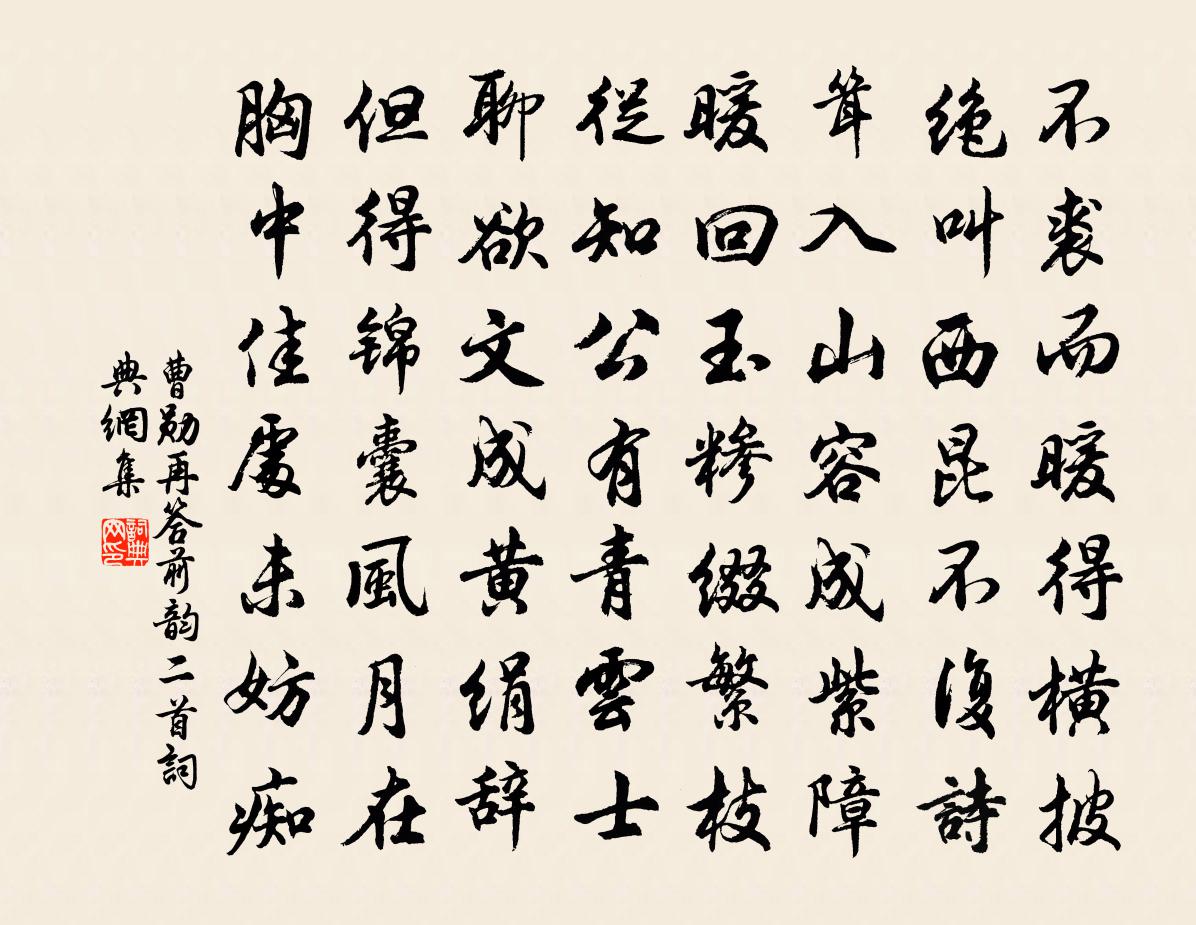 不裘而暖得横披
絶叫西昆不復詩
耸入山容成紫障
暖回玉糁缀繁枝
從知公有青雲士
聊欲文成黄绢辞
但得锦囊風月在
胸中佳處未妨痴
曹勋再答前韵二首詞
典網集
詞典
网印